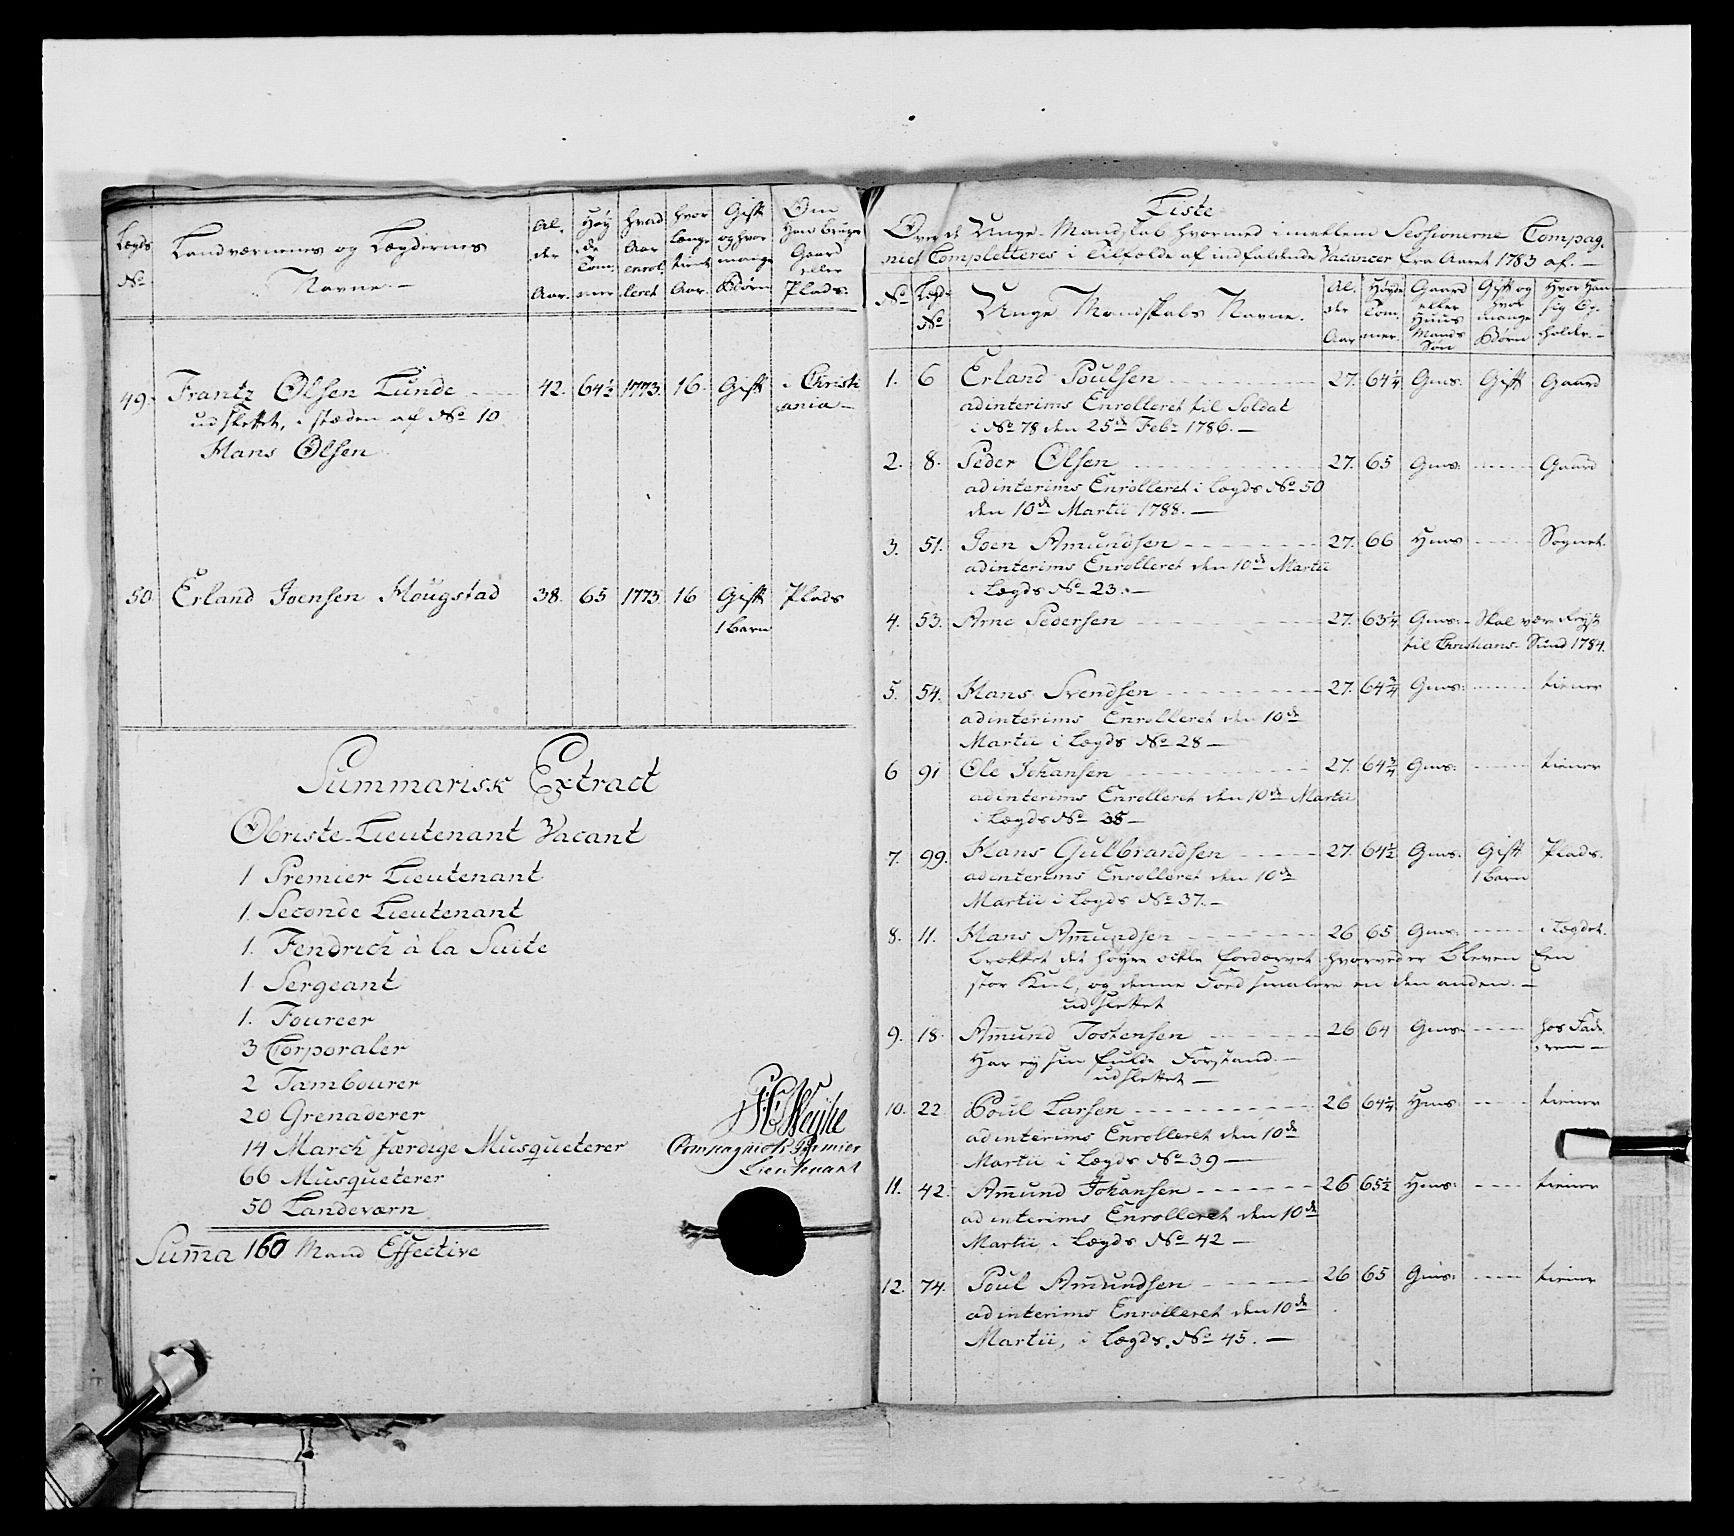 Lægds No
Landværnens og Lægdernes Navne.
Al, der Aar.
Høy de Tom, mer.
hvad Aar enrol, leret
hvor længe tient Aar.
Gift og hvor mange Børn
Om Han bruger Gaard eller Plads.
49. Frantz Olsen Lunde 42. 64½ 1773. 16. Gift i Christi
ania
udslettet, i stæden af No 10
Hans Olsen
50 Erland Joensen Hougstad 38. 65 1773 16 Gift Plads
1 barn
Summarisk Extract
Obriste Lieutenant Vacant
1 Premier Lieutenant
1. Seconde Lieutenant
1. Fendrich à la Suite
1. Sergeant
1. Foureer
3 Corporaler
2 Tambourer
20 Grenaderer
14 March færdige Musqueterer
66 Musqueterer
50 Landeværn
Suma 160 Mand Effective
Compagniets Premier
Lieutenant
Liste
Over de Unge Mandskab hvormed imellem Sessionerne Compag,
niet Completteres i Tilfælde af indfaldende Vacancer fra Aaret 1783 af.
No
Lægds No
Unge Mandskabs Navne.
Al. der Aar
Høyde Tom, mer.
Gaard eller Huus Mands Søn
Gift og hvor mange Børn
Hvor Han sig Op, holder.
1. 6 Erland Poulsen 27. 64¼ Gms. Gift Gaard
adinterims Enrolleret til Soldat
i No 78 den 25de Febr 1786.
2. 8. Peder Olsen 27. 65 Gms. Gaard
adinterims Enrolleret i Lægds No 50
den 10de Martii 1788.
3. 51. Joen Amundsen 27. 66 Hms Sognet.
adinterims Enrolleret den 10de Martii
i Lægds No 23.
4. 53. Arne Pedersen 27. 63¼ Gms. Skal være Reyst
til Christians Sund 1784.
5. 54. Hans Svendsen 27. 64¾ Gms. tiener
adinterims Enrolleret den 10de
Martii i Lægds No 28
6 91 Ole Johansen 27. 64¾ Gms. tiener
adinterims Enrolleret den 10de Martii
i Lægds No 35
7. 99. Hans Gulbrandsen 27. 64½ Gms. Gift Plads.
1 barn
adinterims Enrolleret den 10de
Martii i Lægds No 37.
8. 11. Hans Amundsen 26 65 Gms. i Lægdet.
brækket det høyre fordærvet hvorved er bleven Een
stor Kul, og denne Foed smalere en den anden.
udslettet
9. 18. Amund Tostensen 26 64 Gms. hos Fad
eren
Har ey sin fulde Forstand.
udslettet
10. 22. Poul Larsen 26 64¼ Hms. tiener
adinterims Enrolleret den 10de
Martii i Lægds No 39
11. 42. Amund Johansen 26 65½ Hms. tiener
ad interims Enrolleret den 10de
Martii i Lægds No 42
12. 74. Poul Amundsen 26 65 Gms. tiener
adinterims Enrolleret den 10de
Martii, i Lægds No 45.